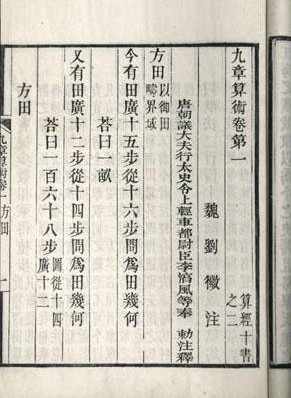 九章算術卷第一
算經十書
之二
魏劉徽注
唐朝議大夫行太史令上輕車都尉臣李淳風等奉 勅注釋
方田以御田
疇界域
今有田廣十五步從十六步問爲田幾何
荅曰一畝
又有田廣十二步從十四步問爲田幾何
荅曰一百六十八步圖從十四
廣十二
方田
九章算術卷一 方田 一